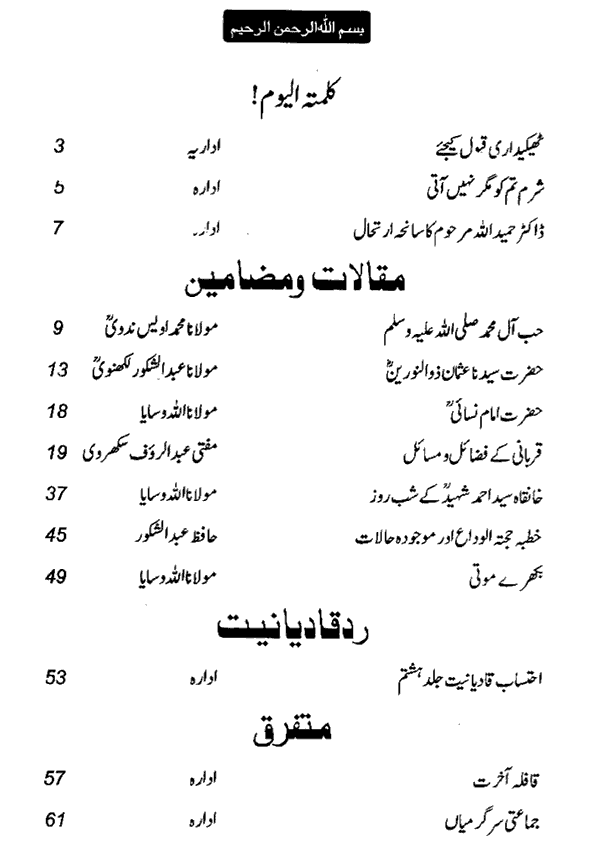 بسم اللہ الرحمن الرحیم
کلمتہ الیوم!
ٹھیکیداری قبول کیجئے اداریہ 3
شرم تم کو مگر نہیں آتی ادارہ 5
ڈاکٹر حمید اللہ مرحوم کا سانحہ ارتحال 7
مقالات ومضامین
حب آل محمد صلی اللہ علیہ وسلم مولانا محمد اویس ندویؒ 9
حضرت سیدنا عثمان ذوالنورینؓ مولانا عبدالشکور لکھنویؒ 13
حضرت امام نسائیؒ مولانا اللہ وسایا 18
قربانی کے فضائل ومسائل مفتی عبدالرؤف سکھروی 19
خانقاہ سید احمد شہیدؒ کے شب روز مولانا اللہ وسایا 37
خطبہ حجتہ الوداع اور موجودہ حالات حافظ عبدالشکور 45
بکھرے موتی مولانا اللہ وسایا 49
ردقادیانیت
احتساب قادیانیت جلد ہشتم ادارہ 53
متفرق
قافلہ آخرت ادارہ 57
جماعتی سرگرمیاں ادارہ 61